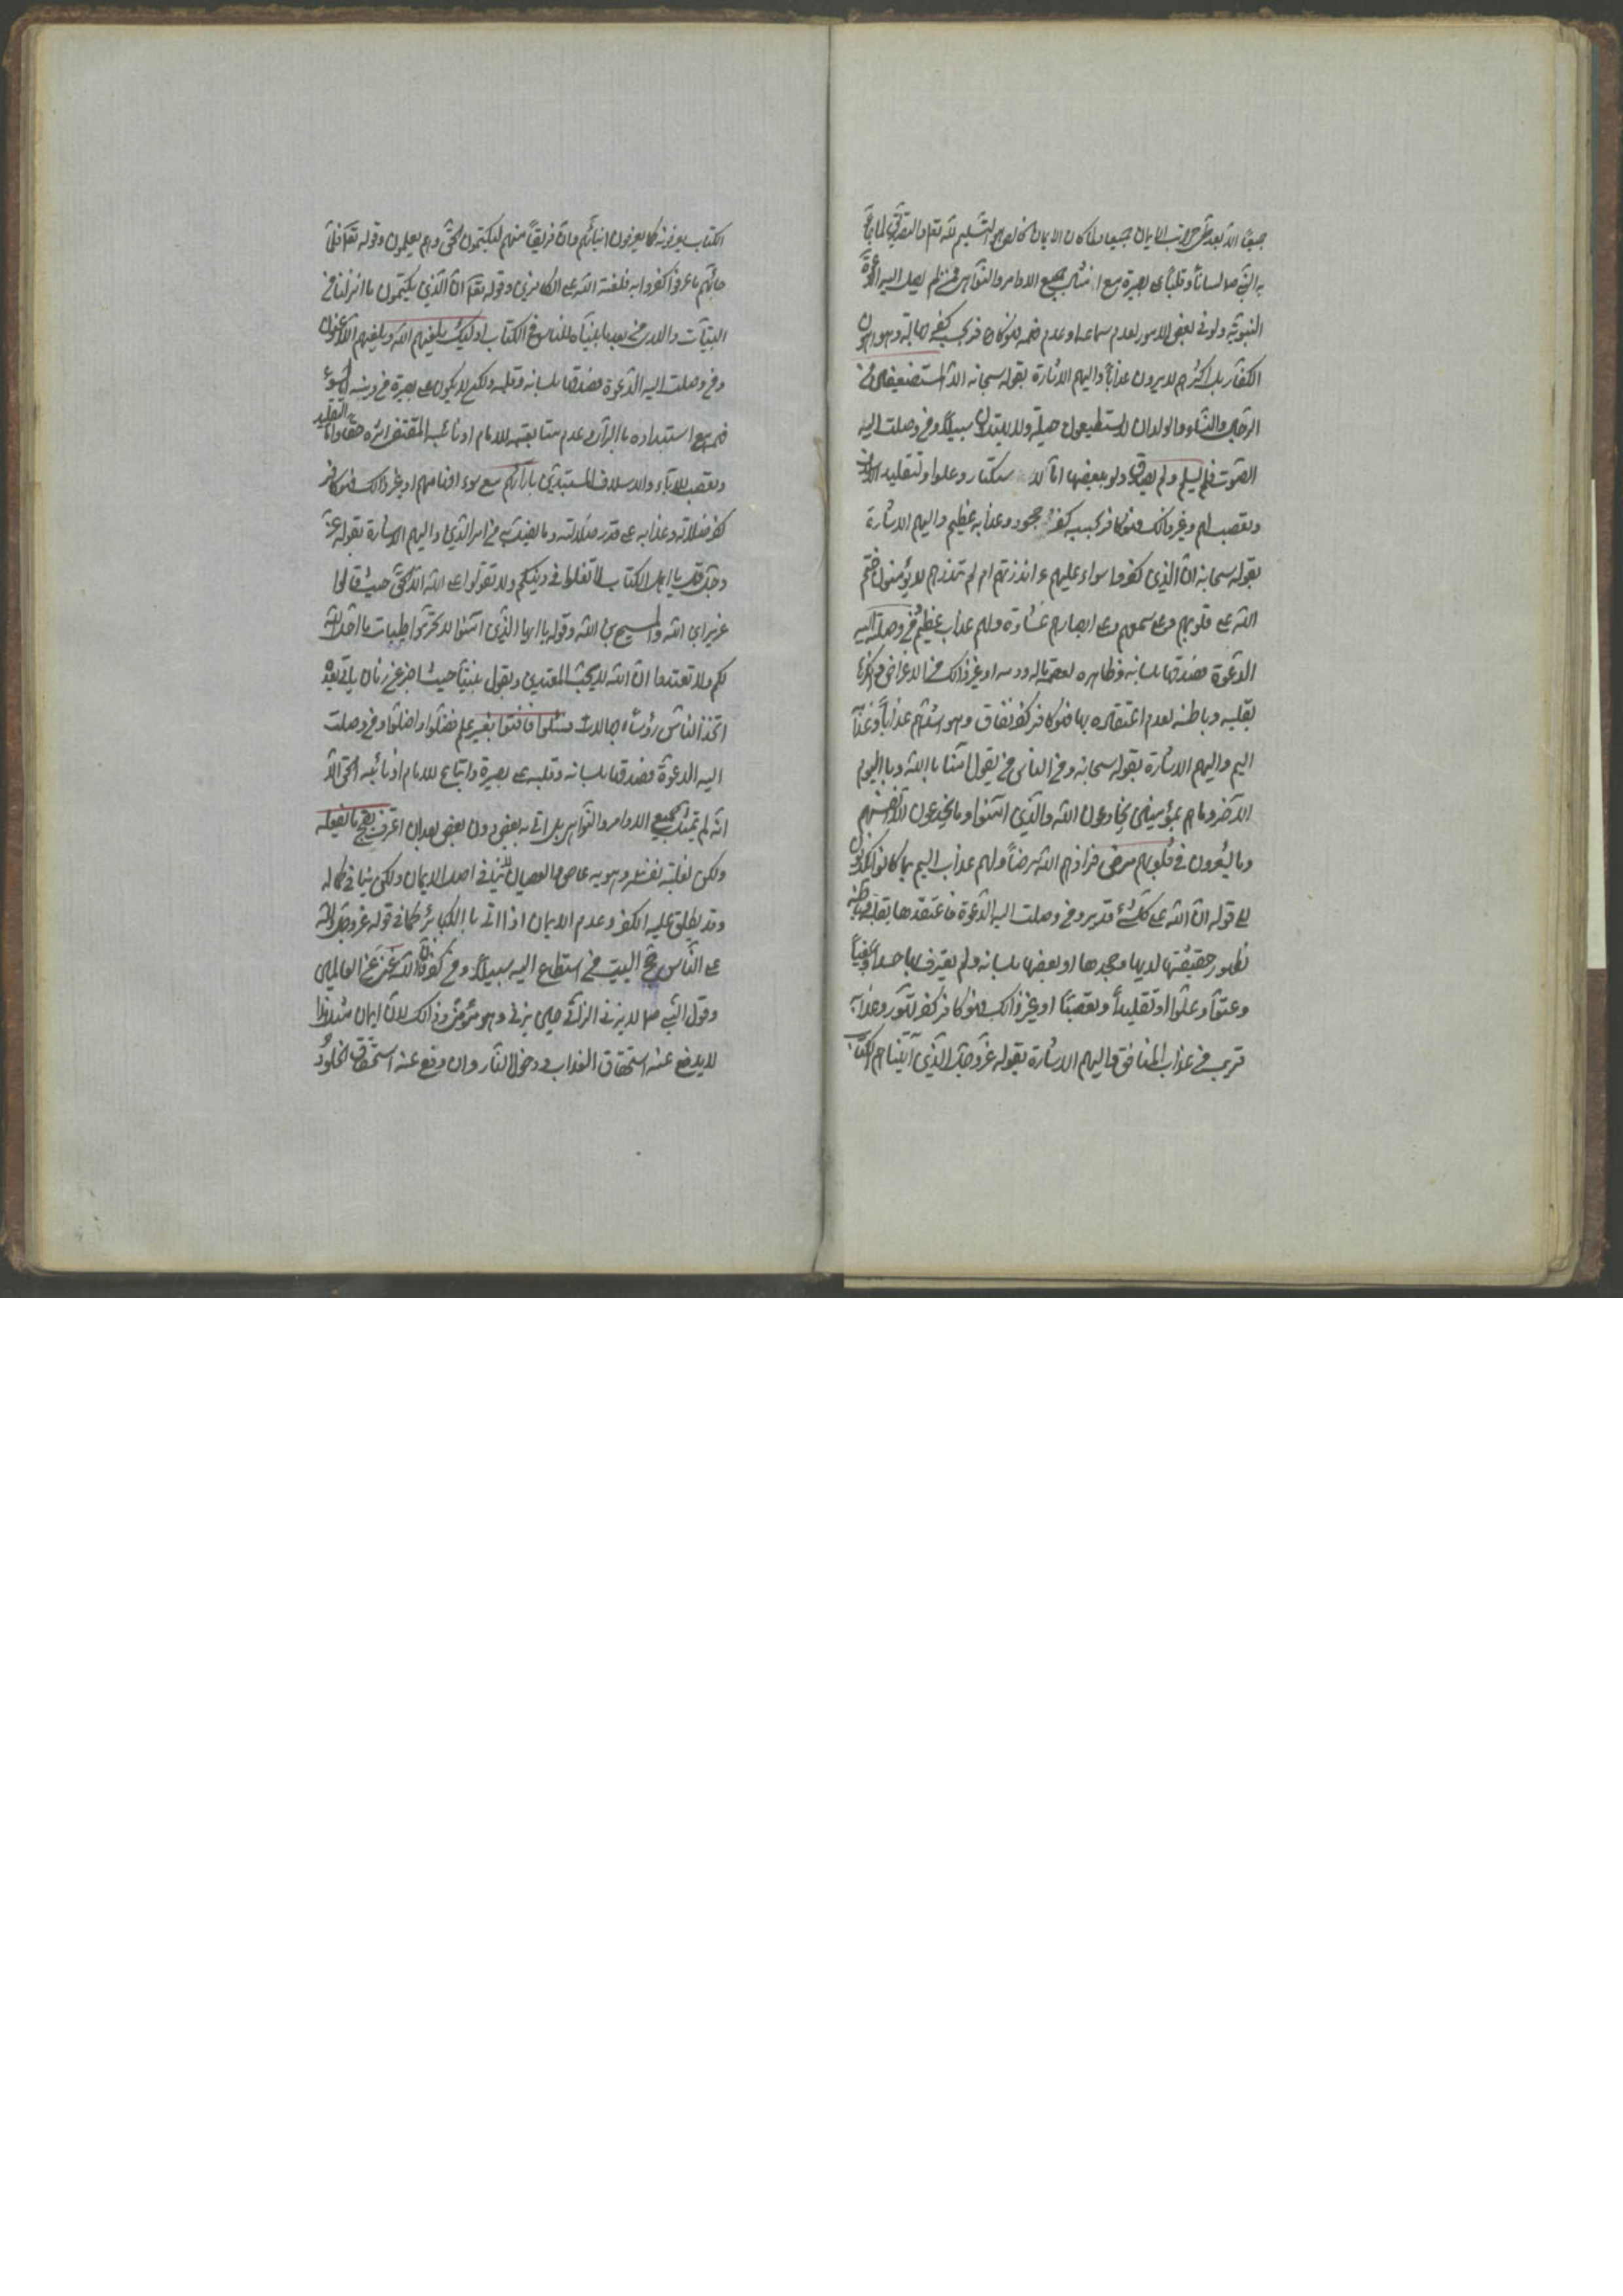 جميعاً الا بعد طي مراتب الايمان جميعا ولما كان الايمان الكامل هو التسليم لله تعالى والتصديق لما جاء
به النبي ص لسانا وقلبا على بصيرة مع امتثال جميع الاوامر والنواهي فمن لم يصل اليه الدعوة
النبوية ولو في بعض الامور لعدم سماعه او عدم فهمه فهو كافر بحسب كفر جهالة وهو اهون
الكفار بل اكثرهم لا يرون عذابا واليهم الاشارة بقوله سبحانه الا المستضعفين من
الرجال والنساء والولدان لا يستطيعون حيلة ولا يهتدون سبيلا ومن وصلت اليه
الدعوة فلم يسلم ولم يصدق ولو ببعضها اما لاستكبار وعلو او لتقليد الاسلاف
وتعصب لهم او غير ذلك فهو كافر بحسبه كفر جحود وعذابه عظيم واليهم الاشارة
بقوله سبحانه ان الذين كفروا سواء عليهم ءانذرتهم ام لم تنذرهم لا يؤمنون ختم
الله على قلوبهم وعلى سمعهم وعلى ابصارهم غشاوة ولهم عذاب عظيم ومن وصلت اليه
الدعوة فصدقها بلسانه وظاهره لعصمة ماله ودمه او غير ذالك من الاغراض وانكرها
بقلبه وباطنه لعدم اعتقاده بها فهو كافر كفر نفاق وهو اشدهم عذابا وعذابه
اليم واليهم الاشارة بقوله سبحانه ومن الناس من يقول امنا باالله وباليوم
الاخر وما هم بمؤمنين يخادعون الله والذين امنوا وما يخدعون الا انفسهم
وما يشعرون في قلوبهم مرض فزادهم الله مرضاً ولهم عذاب اليم بما كانوا يكذبون
الى قوله ان الله على كل شئ قدير ومن وصلت اليه الدعوة فاعتقدها بقلبه وباطنه
لظهور حقيقتها لديها وجحدها او بعضها بلسانه ولم يعترف بها حسدا وبغياً
وعتوا وعلوا او تقليداً وتعصبا او غير ذالك فهو كافر كفر تهود وعذابه
قريب من عذاب المنافق واليهم الاشارة بقوله عز وجل الذين آتيناهم الكتاب
الكتاب يعرفونه كما يعرفون ابنائهم وان فريقاً منهم ليكتمون الحق وهم يعلمون وقوله تعالى فلما
جائهم ما عرفوا كفروا به فلعنة الله على الكافرين وقوله تعالى ان الذين يكتمون ما انزلنا من
البينات والهدى من بعد ما بيناه للناس في الكتاب اولئك يلعنهم الله ويلعنهم اللاعنون
ومن وصلت اليه الدعوة فصدقها بلسانه وقلبه ولكن لا يكون على بصيرة من دينه اما لسوء
فهمه مع استبداده باالرأي وعدم متابعته للامام او نائبه المقتفي اثره حقا واما لتقليد
وتعصب للاباء والاسلاف المستبدين بارائهم مع سوء افهامهم او غير ذالك فهو كافر
كفر ضلالة وعذابه على قدر ضلالته وما يضل به في امر الدين واليهم الاشارة بقوله عز
وجل قل يا اهل الكتاب لا تغلوا في دينكم ولا تقولوا على الله الا الحق حيث قالوا
عزير ابن الله والمسيح بن الله وقوله يا ايها الذين امنوا لا تحرموا طيبات ما احل الله
لكم ولا تعتدوا ان الله لا يحب المعتدين وبقول نبينا حيث اخبر عن زمان يأتي بعده
اتخذ الناس رؤساء جهالا فسئلوا فافتوا بغير علم فضلوا واضلوا ومن وصلت
اليه الدعوة فصدقها بلسانه وقلبه على بصيرة واتباع للامام او نائبه الحق الا
انه لم يمتثل جميع الاوامر والنواهي بل اتى به بعض دون بعض بعد ان اعترف بقبح ما يفعله
ولكن لغلبة نفسه وهويه عاص والعصيان لا ينافي اصل الايمان ولكن ينافي كماله
وقد يطلق عليه الكفر وعدم الايمان اذا اتى باالكبائر كما في قوله عز وجل ولله
على الناس حج البيت من استطاع اليه سبيلا ومن كفر فان الله غني عن العالمين
وقول النبي ص لا يزني الزاني حين يزني وهو مؤمن وذالك لان ايمان مثل هذا
لا يدفع عنه استحقاق العذاب ودخول النار وان دفع عنه استحقاق الخلود